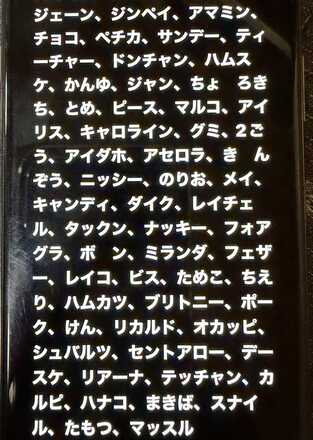 ジェーン、ジンペイ、アマミン、
チョコ、ペチカ、サンデー、ティ
ーチャー、ドンチャン、ハムス
ケ、かんゆ、ジャン、ちょ　ろき
ち、とめ、ピース、マルコ、アイ
リス、キャロライン、グミ、2ご
う、アイダホ、アセロラ、き　ん
ぞう、ニッシー、のりお、メイ、
キャンディ、ダイク、レイチェ
ル、タックン、ナッキー、フォア
グラ、ボ　ン、ミランダ、フェザ
ー、レイコ、ビス、ためこ、ちえ
り、ハムカツ、ブリトニー、ポー
ク、けん、リカルド、オカッピ、
シュバルツ、セントアロー、デー
スケ、リアーナ、テッチャン、カ
ルピ、ハナコ、まきば、スナイ
ル、たもつ、マッスル